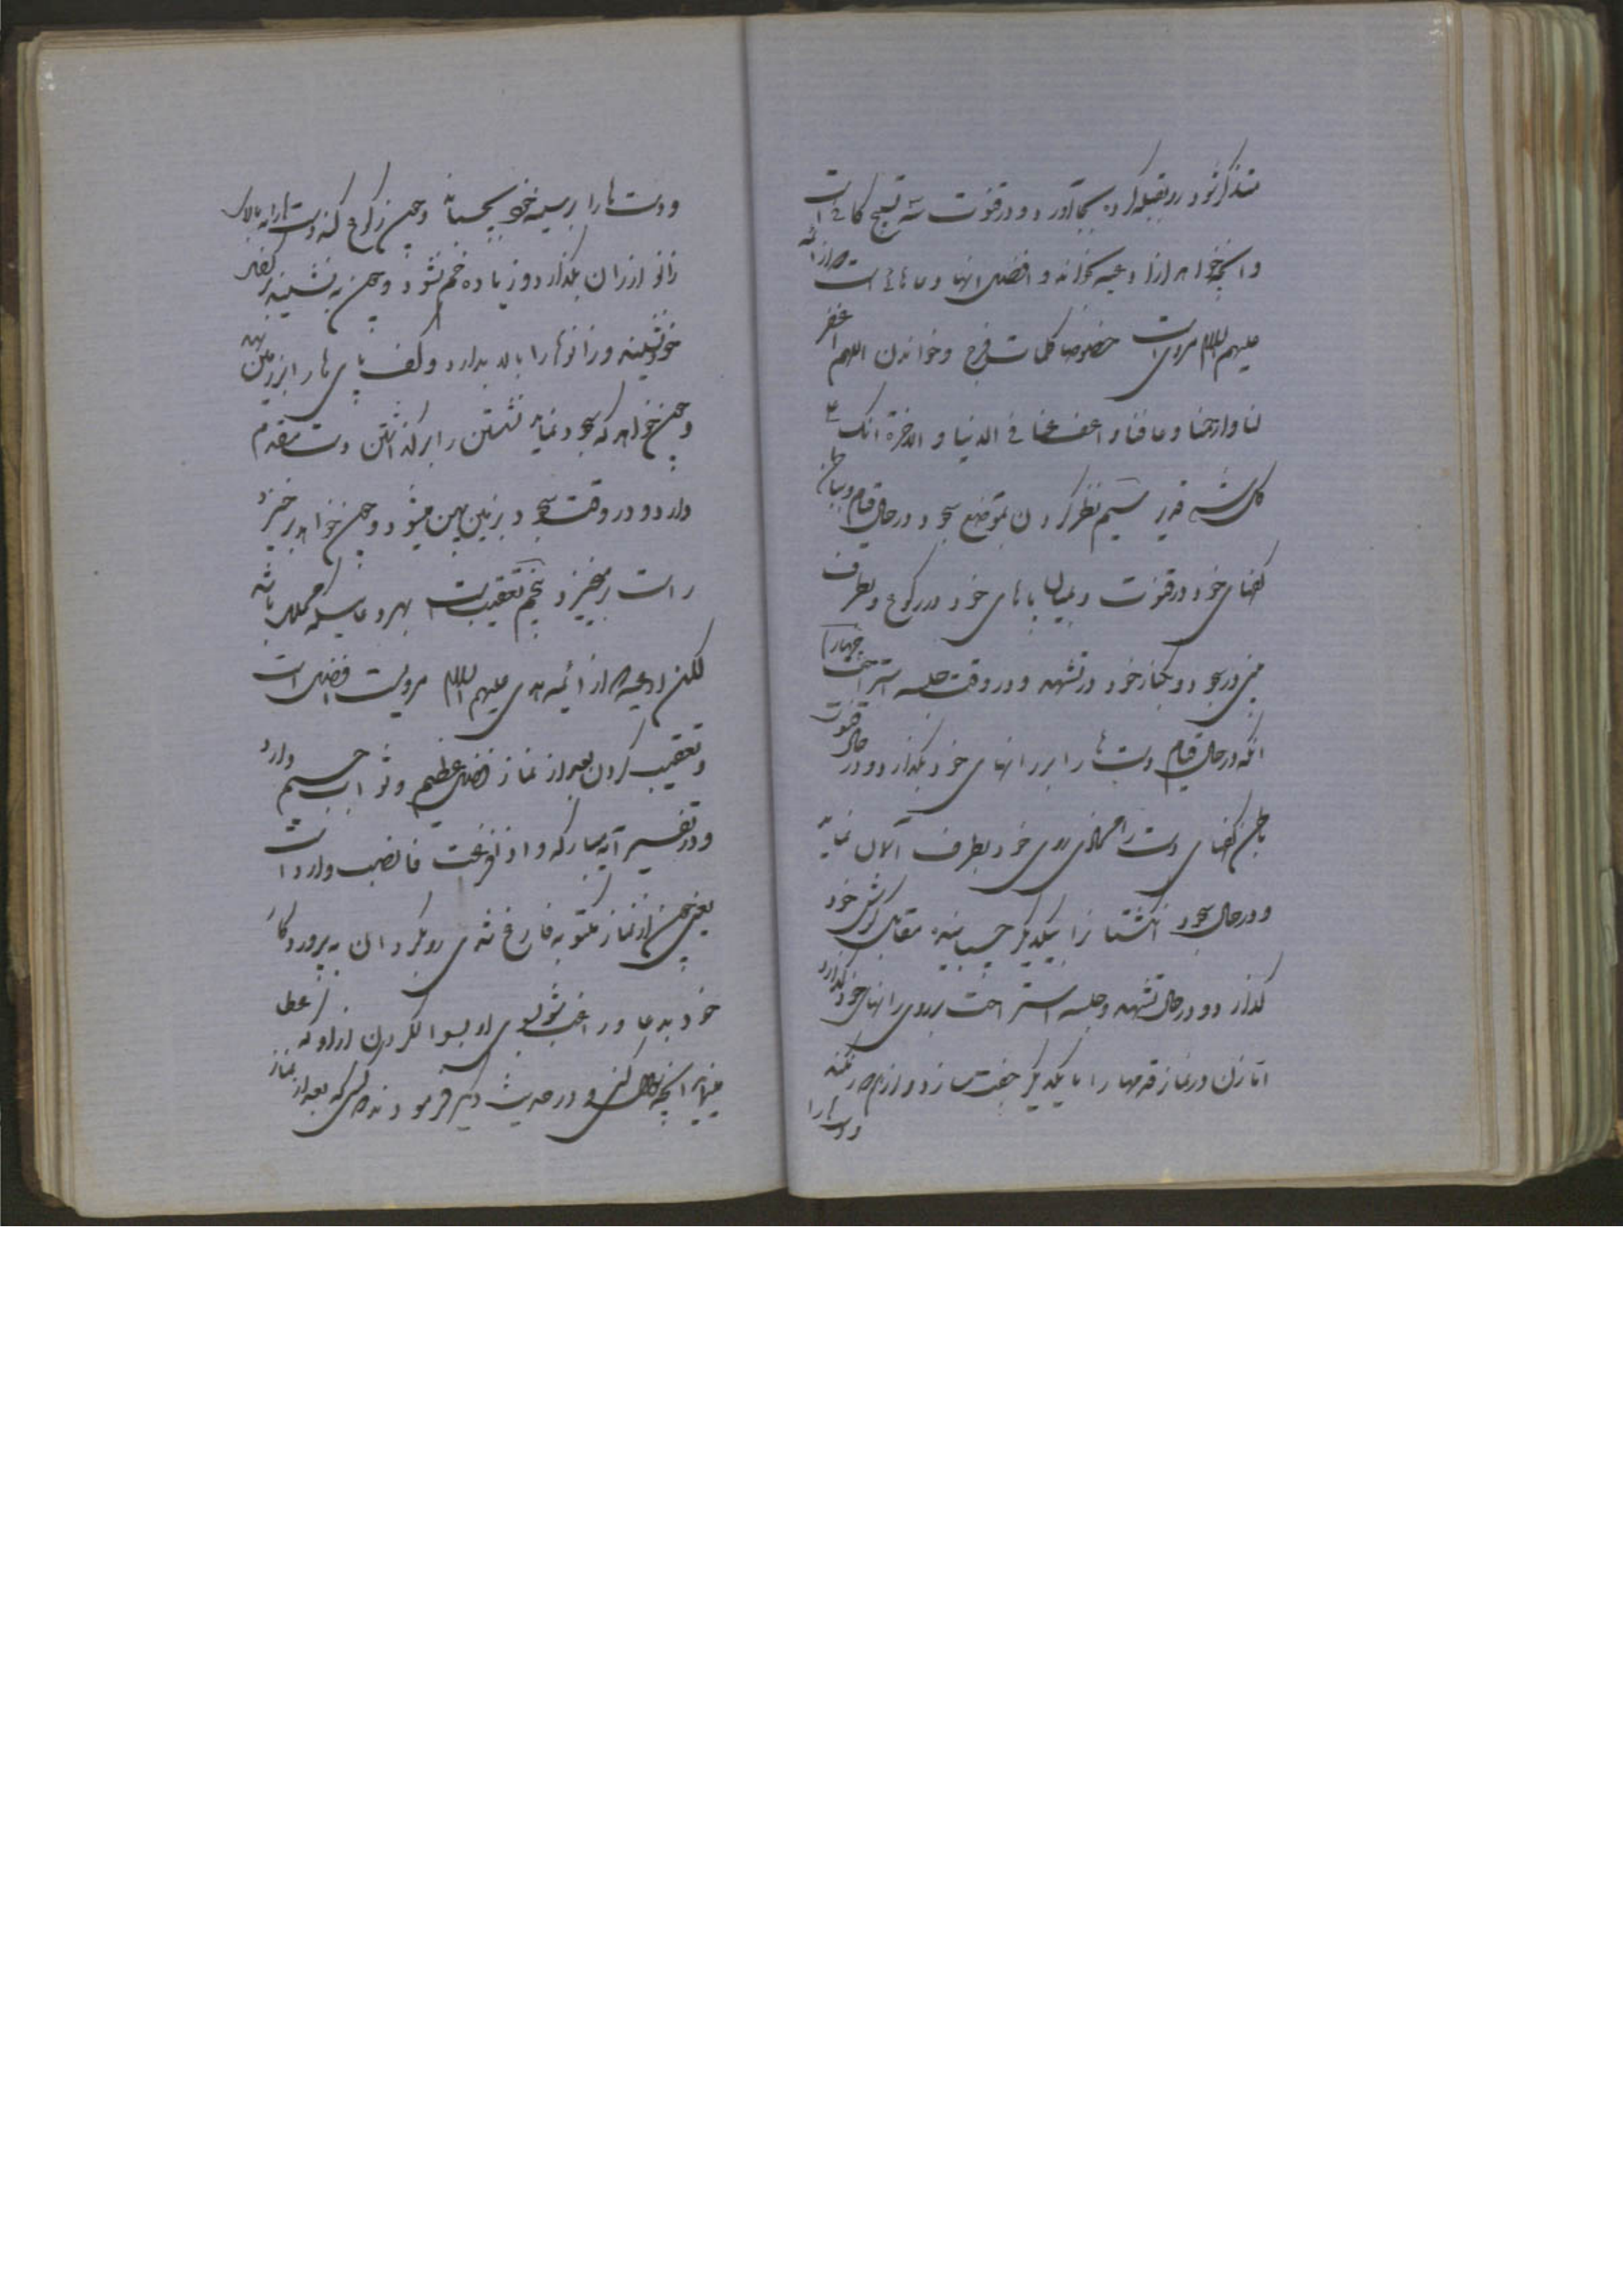 متذکر شود رو بقبله کرده بجا آورد و در قنوت سه تسبیح کافی است
و آنچه خواهد از ادعیه بخواند و افضل آنها دعاهائی است که از ائمه
علیهم السلام مرویست خصوصا کلمات فرج و خواندن اللهم اغفر
لنا وارحمنا وعافنا واعف عنا فی الدنیا والاخرة انک علی
کل شیء قدیر سیم نظر کردن بموضع سجود در حال قیام و بباطن
کفهای خود در قنوت و بمیان پاهای خود در رکوع و بطرف
بینی در سجود و بکنار خود در تشهد و در وقت جلسه استراحت چهارم
آنکه در حال قیام دست ها را بر رانهای خود بگذارد و در حال قنوت
باطن کفهای دست را محاذی روی خود بطرف آسمان نماید
و در حال سجود انگشتان را بیکدیگر چسبانیده مقابل گوش خود
گذارد و در حال تشهد و جلسه استراحت بر روی رانهای خود گذارد
اما زن در نماز قدمها را با یکدیگر جفت سازد و از هم دور نکند
و دست ها را
و دست ها را بر سینه خود بچسباند و چون رکوع کند دست ها را به بالای
زانو از ران بگذارد و زیاده خم نشود و چون به نشیند بر کفل
خود نشیند و زانوها را بالا بدارد و کف پای ها را بر زمین نهد
و چون خواهد که سجود نماید نشستن را بر گذاشتن دست مقدم
دارد و در وقت سجود بر زمین پهن میشود و چون خواهد برخیزد
راست برمیخیزد پنجم تعقیب است بهر دعا یکه باشد
لکن ادعیه که از ائمه هدی علیهم السلام مرویست افضل است
و تعقیب کردن بعد از نماز فضل عظیم و ثواب جسیم دارد
و در تفسیر آیه مبارکه و اذ افرغت فانصب وارد است
یعنی چون از نماز مکتوبه فارغ شدی رو بگردان به پروردگار
خود بدعا و راغب شو بسوی او بسوال کردن از او که عطا
مینماید آنچه سوال کنی و در حدیث دیگر فرمودند کسی که بعد از نماز